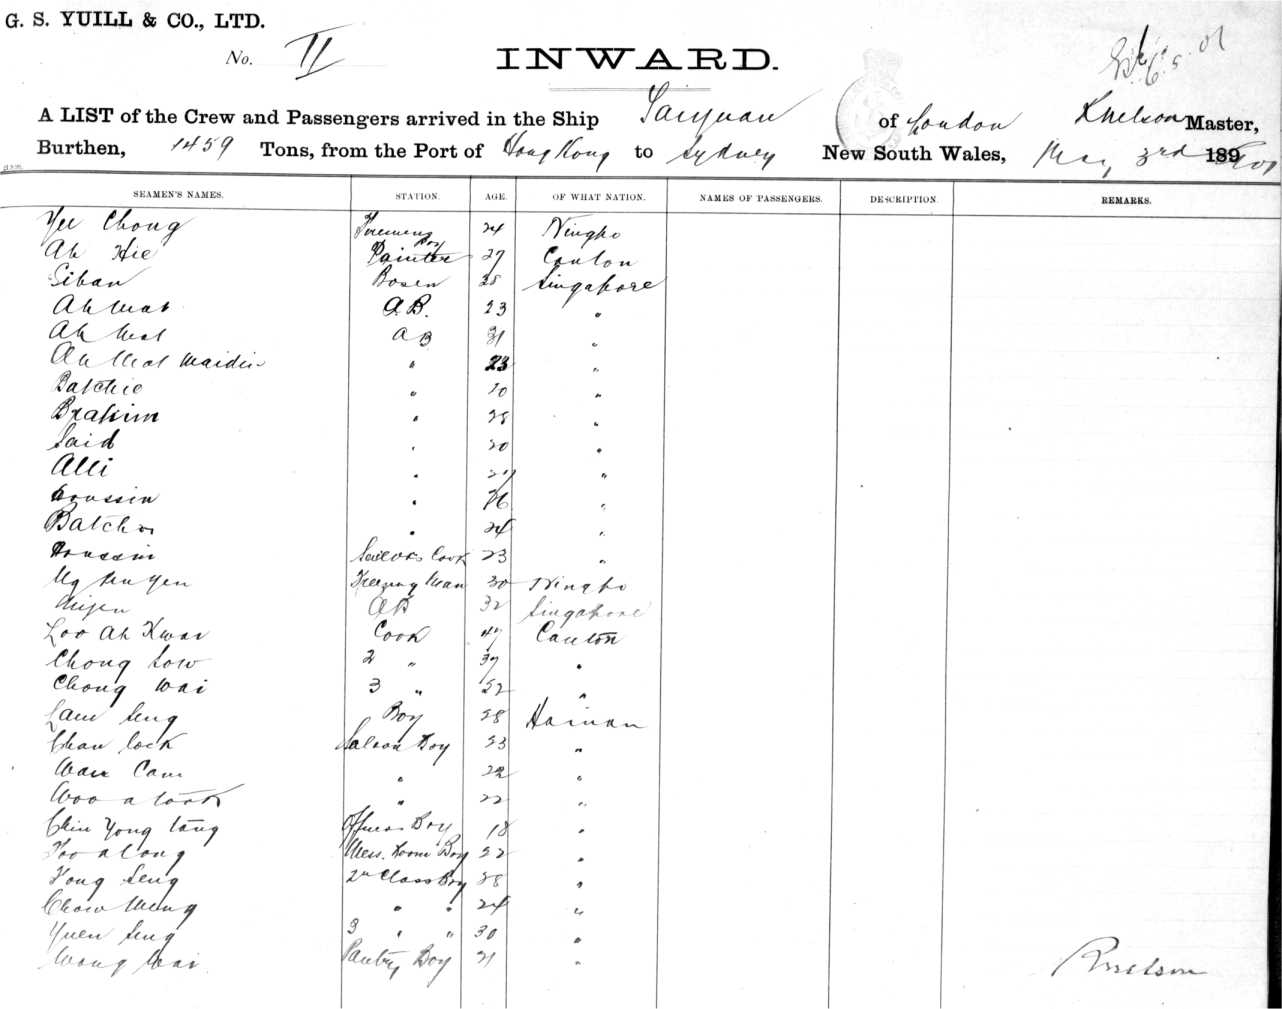 G. S. YUILL & CO., LTD.
No. II
INWARD.
A LIST of the Crew and Passengers arrived in the Ship Taiyuan of London Nelson Master,
Burthen, 1459 Tons, from the Port of Hong Kong to Sydney New South Wales, May 3rd 189 1901
SEAMEN'S NAMES. STATION. AGE. OF WHAT NATION. NAMES OF PASSENGERS. DESCRIPTION. REMARKS.
Yee Chong Firemens Boy 24 Ningpo
Ah Hie Painter 27 Canton
Siban Bosen 28 Singapore
Ah Mat A.B. 23 "
Ah Mat AB 31 "
Ah Mat Maidin " 23 "
Batchie " 20 "
Brahim " 28 "
Said " 20 "
Alli " 27 "
Houssin " 26 "
Batcho " 24 "
Houssin Sailors Cook 23 "
30 Ningpo
AB 32 Singapore
Loo Ah Kwai Cook 47 Canton
Chong Sow 2 " 37 "
Chong Wai 3 " 22 "
Lam Seng Boy 28 Hainan
Chan Sock Saloon Boy 23 "
Wan Cam " 22 "
Woo a took " 22 "
Chin Yong tang Officers Boy 18 "
Foo a long Mess Room Boy 22 "
Fong Seng 2nd Class Boy 28 "
Chow Meng " " 24 "
Yuen Seng 3 " " 30 "
Wong Wai Pantry Boy 21 "
Nelson